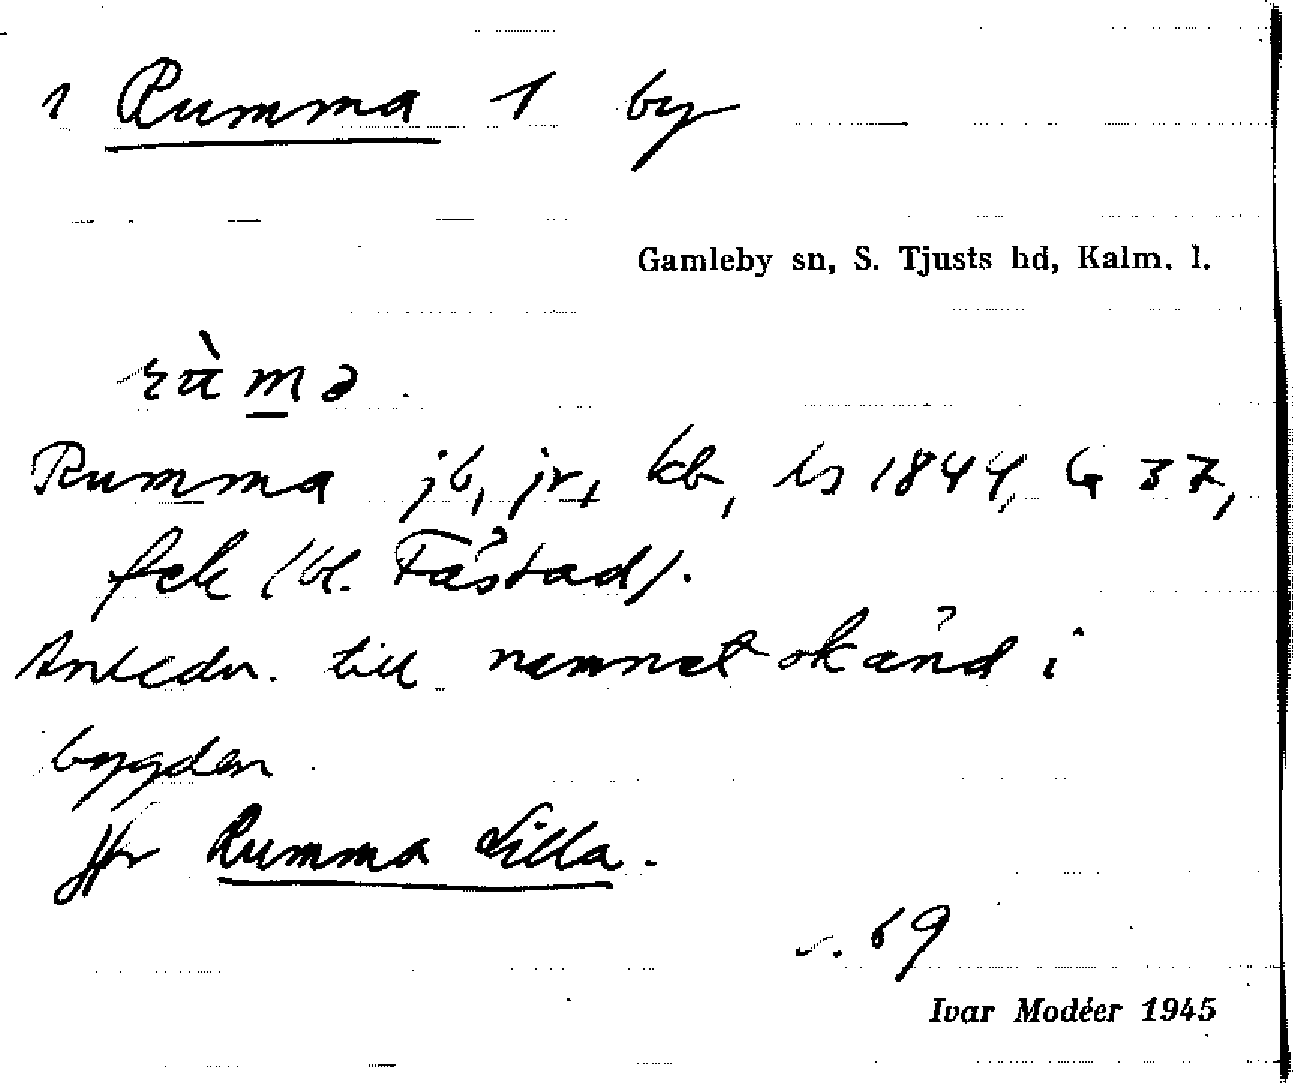 1 Rumma 1 by
Gamleby sn, S. Tjusts hd, Kalm. l.
Rumma jb, jr, kb, ls 1844, G 37,
fck (bl. Fåstad).
Anledn. till namnet okänd i
bygden.
Jfr Rumma Lilla.
s. 69
Ivar Modéer 1945